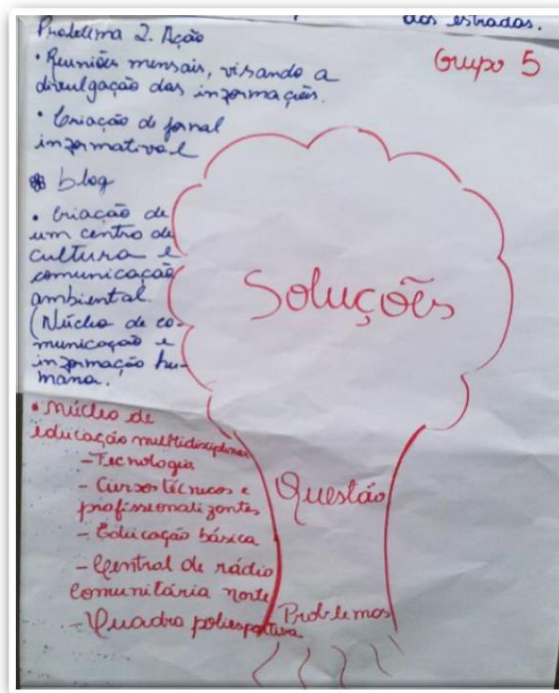 das estradas.
Grupo 5
Problema 2. Ação
• Reuniões mensais, visando a
divulgação das informações.
• Criação de jornal
informativo e
blog
• Criação de
um centro de
cultura e
comunicação
ambiental.
(Núcleo de co-
municação e
informação hu-
mana.
• Núcleo de
educação multidisciplinar
- Tecnologia
- Cursos técnicos e
profissionalizantes
- Educação básica
- Central de rádio
comunitária norte
- Quadra poliesportiva
Soluções
Questão
Problemas